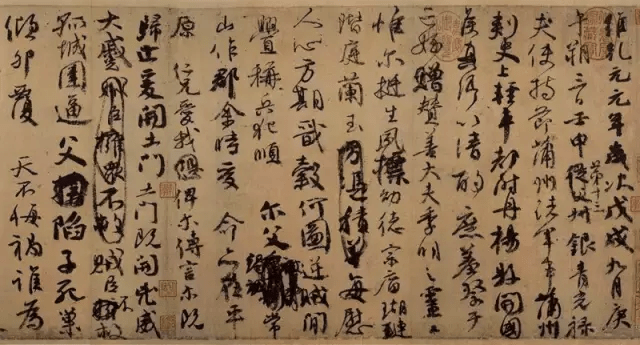 維乾元元年歲次戊戌九月庚
午朔三日壬申第十三叔銀青光祿
夫使持節蒲州諸軍事蒲州
刺史上輕車都尉丹楊縣開國
侯真卿以清酌庶羞祭于
亡姪贈贊善大夫季明之靈曰
惟爾挺生夙標幼德宗廟瑚璉
階庭蘭玉方憑積善每慰
人心方期戩穀何圖逆賊閒
釁稱兵犯順 爾父竭誠常
山作郡余時受 命亦在平
原仁兄愛我俾爾傳言爾既
歸止爰開土門土門既開凶威
大蹙賊臣擁眾不救賊臣不救
孤城圍逼父陷子死巢
傾卵覆 天不悔禍誰為